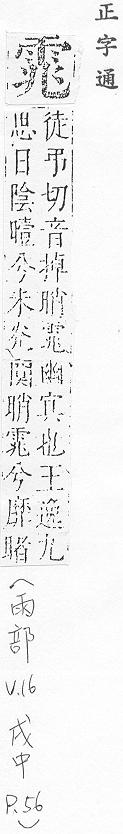 正字通
雿
徒弔切音掉睄雿幽冥也王逸九
思日陰曀兮未灮闃睄雿兮靡睹
(雨部 V.16 戌中 P.56)